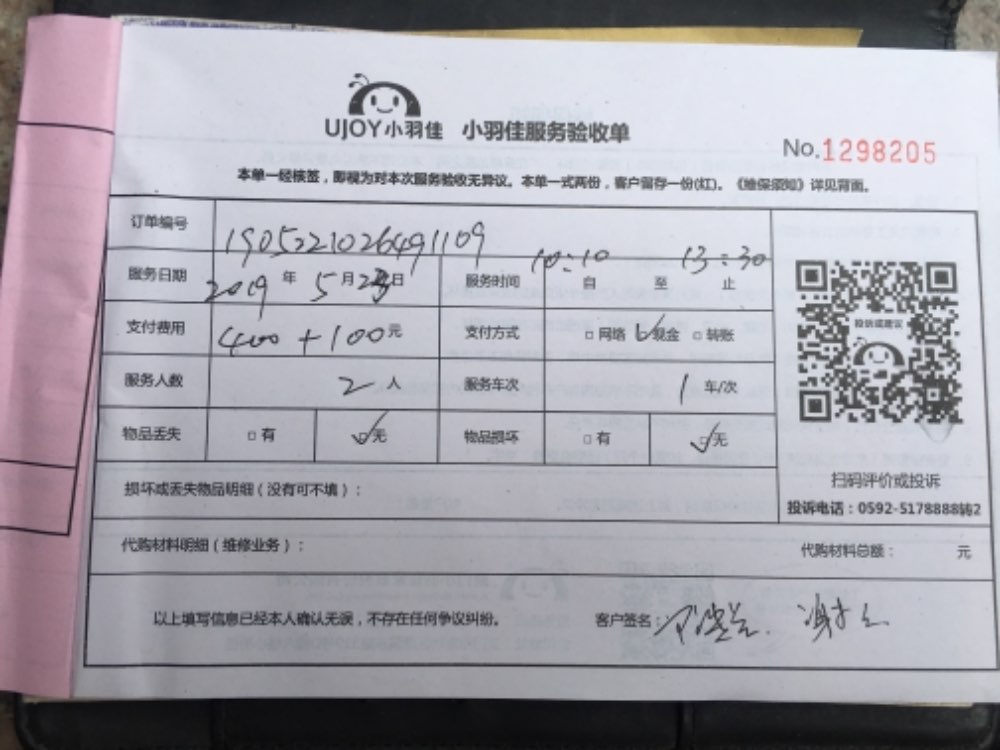 UJOY小羽佳 小羽佳服务验收单
No.1298205
本单一经核签，即视为对本次服务验收无异议。本单一式两份，客户留存一份(红)。《维保须知》详见背面。
订单编号 1905221026491109
服务日期 2019 年 5 月 23 日 服务时间 10:10 自 至 13:30 止
投诉或建议
支付费用 400+100 元 支付方式 □网络 ☑现金 □转账
服务人数 2 人 服务车次 1 车/次
物品丢失 □有 ☑无 物品损坏 □有 ☑无
扫码评价或投诉
损坏或丢失物品明细（没有可不填）：
投诉电话：0592-5178888转2
代购材料明细（维修业务）： 代购材料总额： 元
以上填写信息已经本人确认无误，不存在任何争议纠纷。 客户签名：